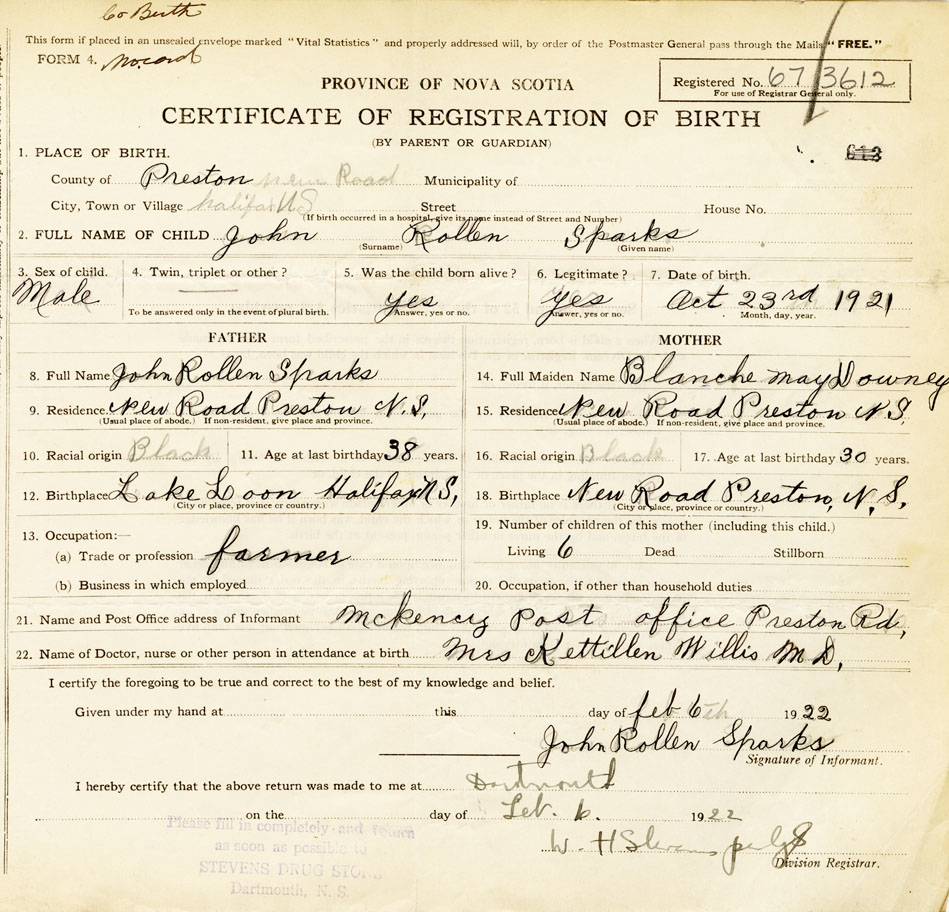 Co Birth
This form if placed in an unsealed envelope marked "Vital Statistics" and properly addressed will, by order of the Postmaster General pass through the Mails "FREE."
FORM 4.
PROVINCE OF NOVA SCOTIA
Registered No. 67/3612
For use of Registrar General only.
CERTIFICATE OF REGISTRATION OF BIRTH
(BY PARENT OR GUARDIAN)
1. PLACE OF BIRTH.
County of Preston new Road Municipality of
City, Town or Village Halifax N S Street House No.
(If birth occurred in a hospital, give its name instead of Street and Number)
2. FULL NAME OF CHILD John Rollen Sparks
(Surname) (Given name)
3. Sex of child. 4. Twin, triplet or other? 5. Was the child born alive? 6. Legitimate? 7. Date of birth.
Male Yes Yes Oct 23rd 1921
To be answered only in the event of plural birth. Answer, yes or no. Answer, yes or no. Month, day, year.
FATHER MOTHER
8. Full Name John Rollen Sparks 14. Full Maiden Name Blanche may Downey
9. Residence New Road Preston N.S, 15. Residence New Road Preston N S,
(Usual place of abode.) If non-resident, give place and province. (Usual place of abode.) If non-resident, give place and province.
10. Racial origin Black 11. Age at last birthday 38 years. 16. Racial origin Black 17. Age at last birthday 30 years.
12. Birthplace Lake Loon Halifax N S, 18. Birthplace New Road Preston, N, S,
(City or place, province or country.) (City or place, province or country.)
13. Occupation:— 19. Number of children of this mother (including this child.)
(a) Trade or profession farmer Living 6 Dead Stillborn
(b) Business in which employed 20. Occupation, if other than household duties
21. Name and Post Office address of Informant post office Preston Rd,
22. Name of Doctor, nurse or other person in attendance at birth Mrs Kettillen Willis M D,
I certify the foregoing to be true and correct to the best of my knowledge and belief.
Given under my hand at this day of feb 6th 1922
John Rollen Sparks
Signature of Informant.
I hereby certify that the above return was made to me at Dartmouth
on the day of Feb. 6. 1922
W. H Stevens
Division Registrar.
Please fill in completely and return
as soon as possible to
STEVENS DRUG STORE
Dartmouth, N. S.